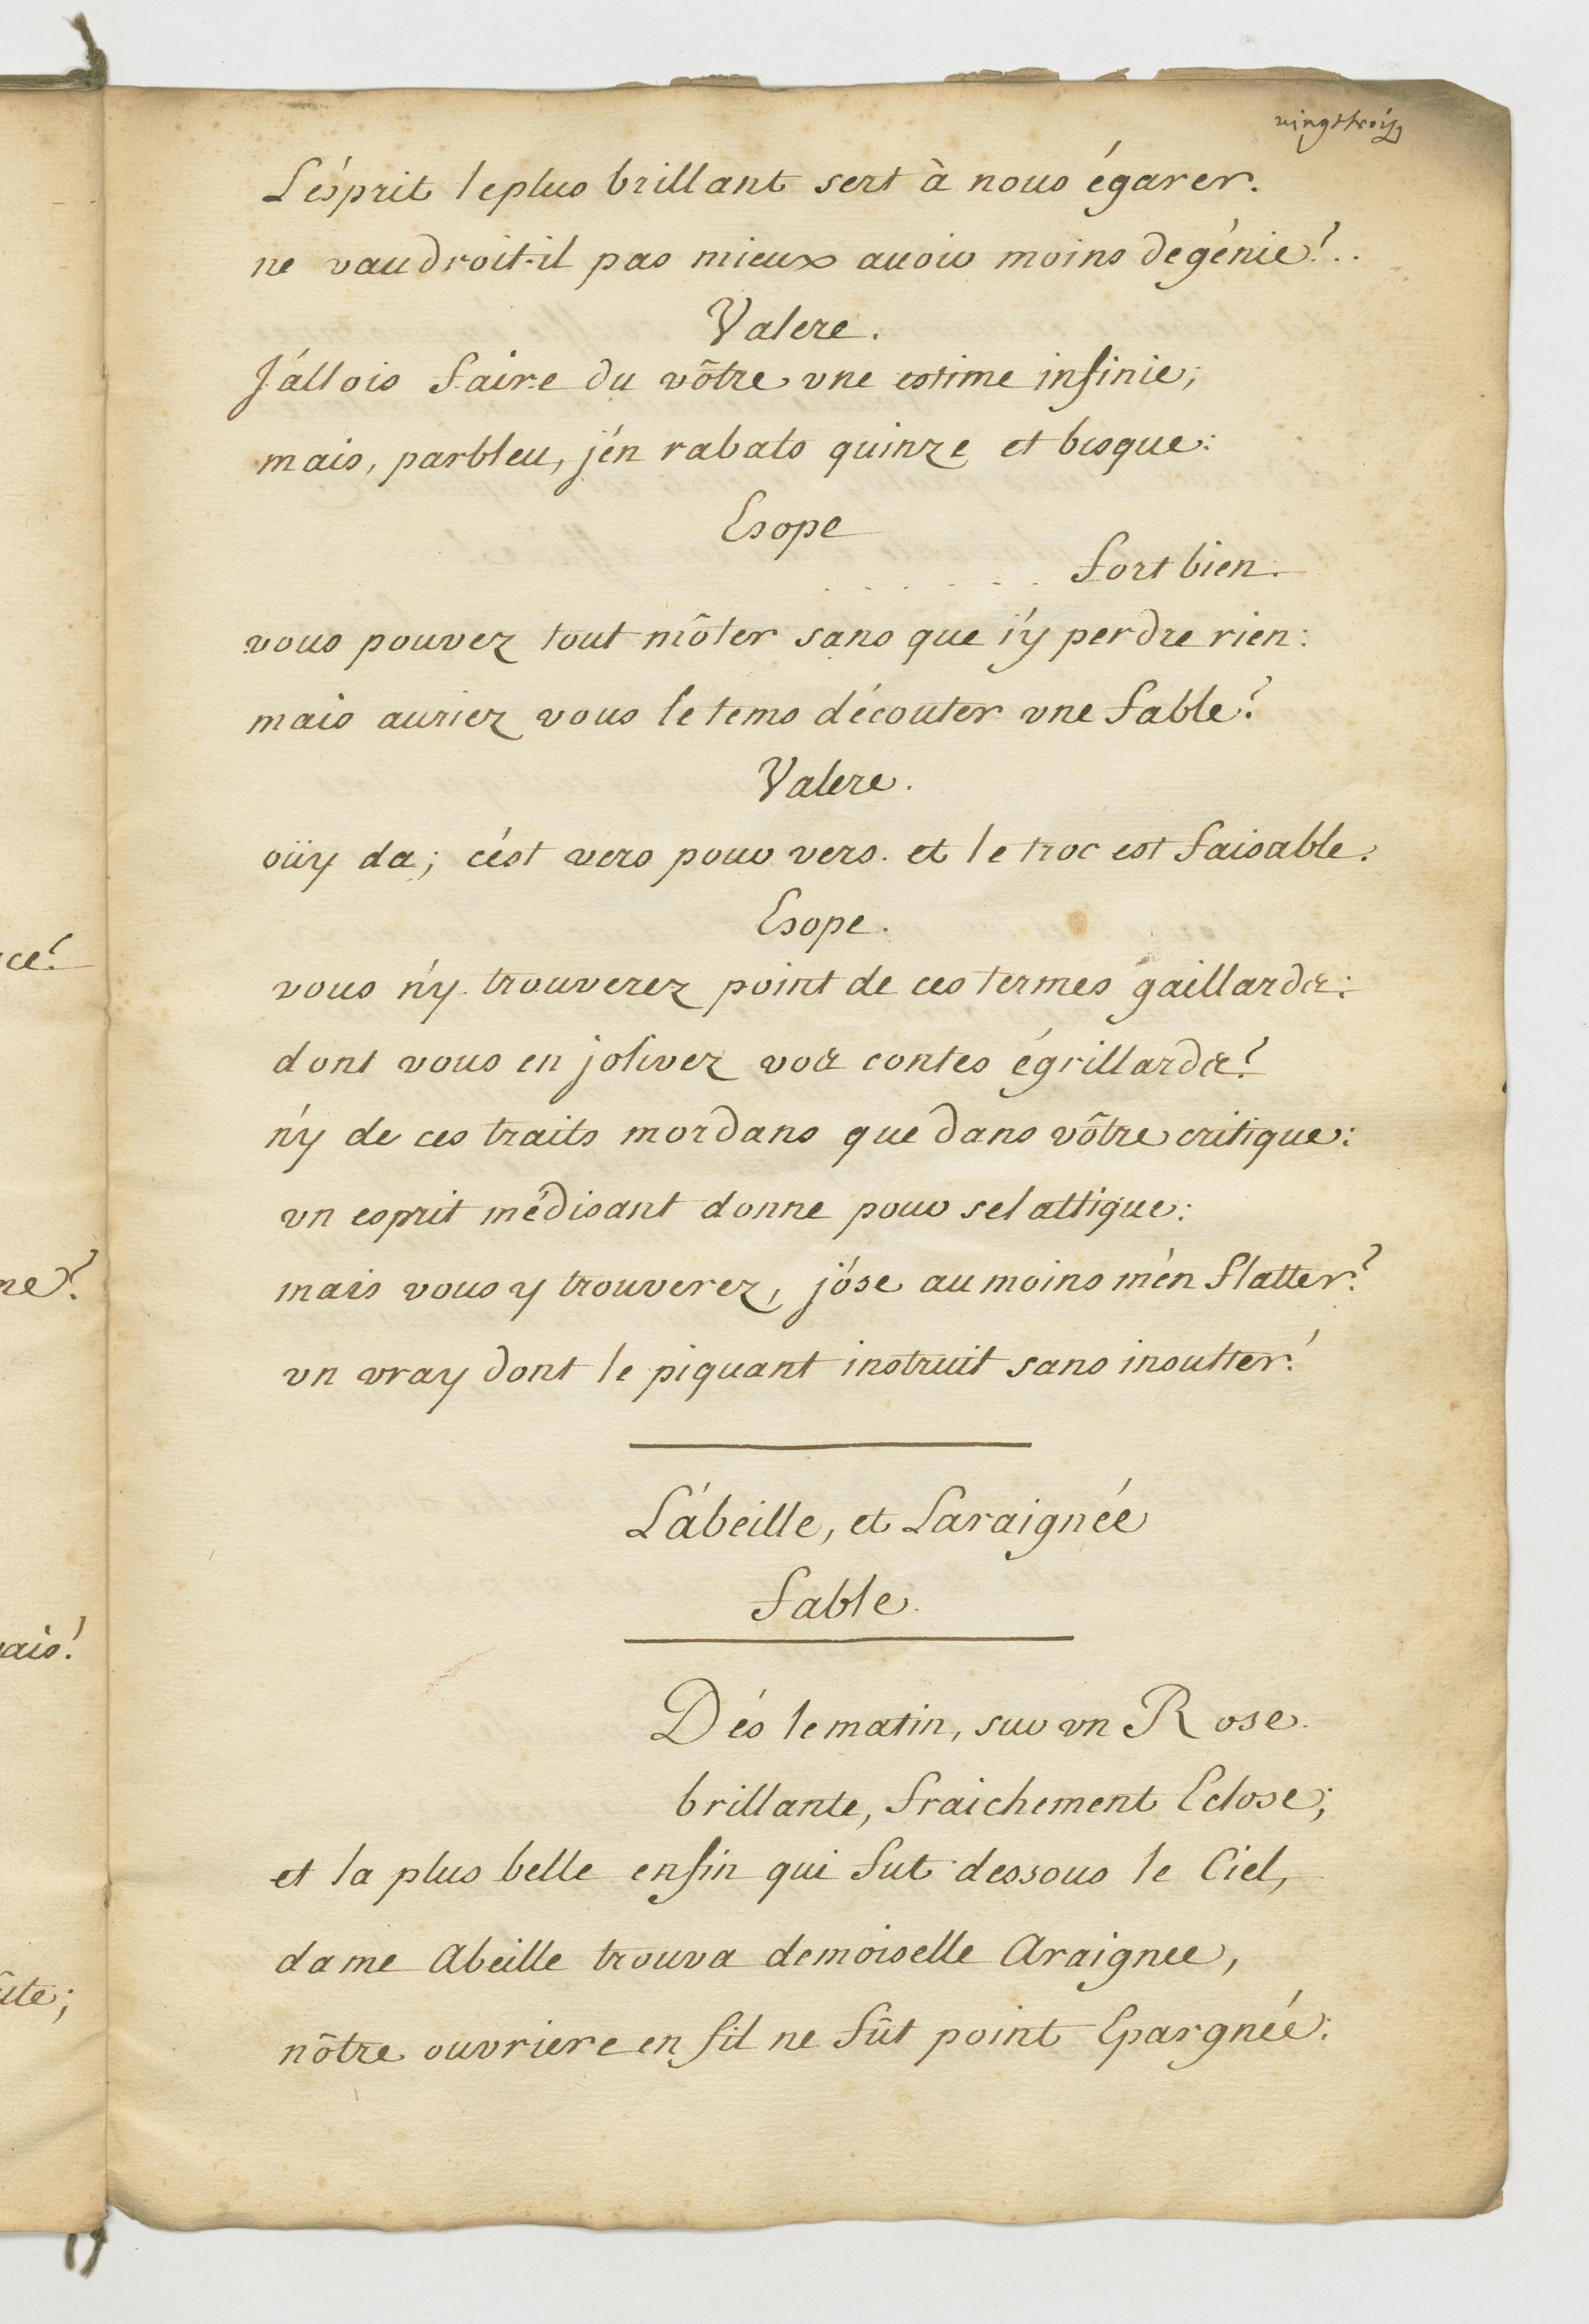 vingt trois
L'ésprit le plus brillant sert à nous égarer.
ne vaudroit-il pas mieux auoir moins de génie?..
Valere.
J'allois faire du vôtre vne estime infinie;
mais, parbleu, j'én rabats quinze et bisque:
Esope
. . . . . . fort bien.
vous pouvez tout m'ôter sans que j'y perdre rien:
mais auriez vous le tems d'écouter vne fable?
Valere.
oüy da; c'ést vers pour vers. et le troc est faisable.
Esope.
vous n'y trouverez point de ces termes gaillards:
dont vous en jolivez vos contes égrillards?
n'y de ces traits mordans que dans vôtre critique:
vn esprit médisant donne pour sel attique:
mais vous y trouverez, j'ose au moins m'én flatter?
vn vray dont le piquant instruit sans insulter!
L'abeille, et Laraignée
fable.
Dés le matin, sur vn Rose.
brillante, fraichement Eclose;
et la plus belle enfin qui fut dessous le Ciel,
dame Abeille trouva demoiselle Araignee,
nôtre ouvriere en fil ne fût point Epargnée:
ce?
ne?
ais!
ûte;